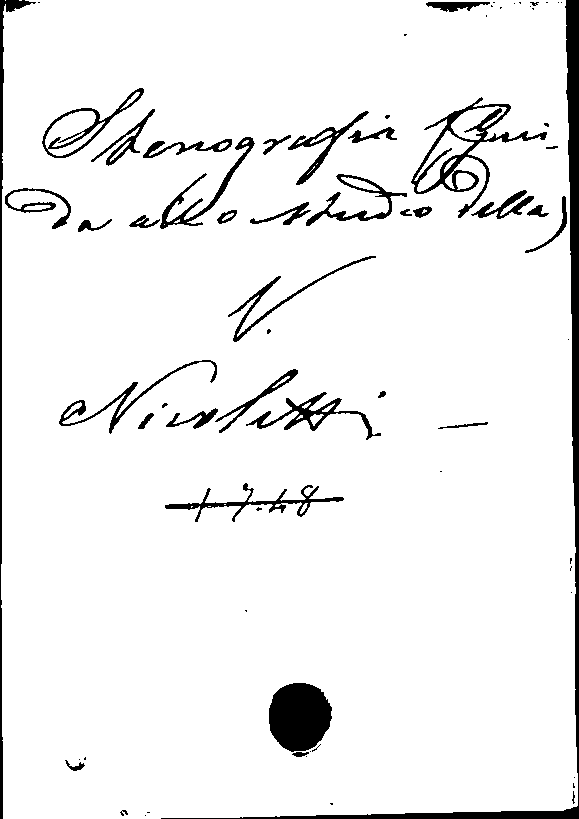 Stenografia (Gui-
da allo studio della)
V.
Nicoletti —
17.48